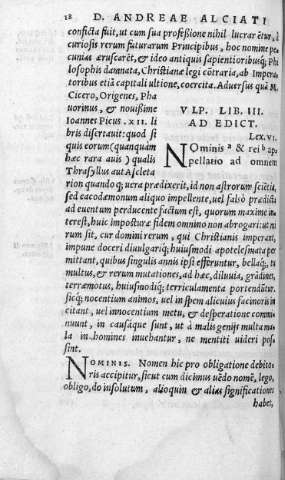 18 D. ANDREAE ALCIATI
conficta fuit, ut cum sua profeßione nihil lucrarētur, à
curiosis rerum futurarum Principibus, hoc nomine pe-
cunias æruscarēt, & ideo antiquis sapientioribusq́; Phi
losophis damnata, Christianæ legi cōtraria, ab Impera-
toribus etiā capitali ultione, coercita. Aduersus quā M.
Cicero, Origenes, Pha
uorinus, & nouißime
Ioannes Picus .XII. li
bris disertauit: quod si
quis eorum (quanquam
hæc rara auis) qualis
Thrasyllus aut Ascleta
VLP. LIB. III.
AD EDICT.
Lex.VI.
Nominis a & rei b ap-
pellatio ad omnem
rion quandoq́; uera prædixerit, id non astrorum sciētia,
sed cacodæmonum aliquo impellente, uel falsò prædicta
ad euentum perducente factum est, quorum maxime in-
terest, huic imposturæ fidem omnino non abrogari: ut mi
rum sit, cur domini rerum, qui Christianis imperant,
impune doceri diuulgariq́; huiusmodi apotelesmata per
mittant, quibus singulis annis ipsi efferuntur, bellaq́; ti
multus, & rerum mutationes, ad hæc, diluuia, grādines,
terræmotus, huiusmodiq́; terriculamenta portenduntur.
Sicq́; nocentium animos, uel in spem alicuius facinoris in
citant, uel innocentium metu, & desperatione commi-
nuunt, in causaque sunt, ut à malis genijs multa ma-
la in homines inuehantur, ne mentiti uideri pos-
sint.
Nominis. Nomen hic pro obligatione debito-
ris accipitur, sicut cum dicimus uēdo nomē, lego,
obligo, do insolutum, alioquin & alias significationes
habet,